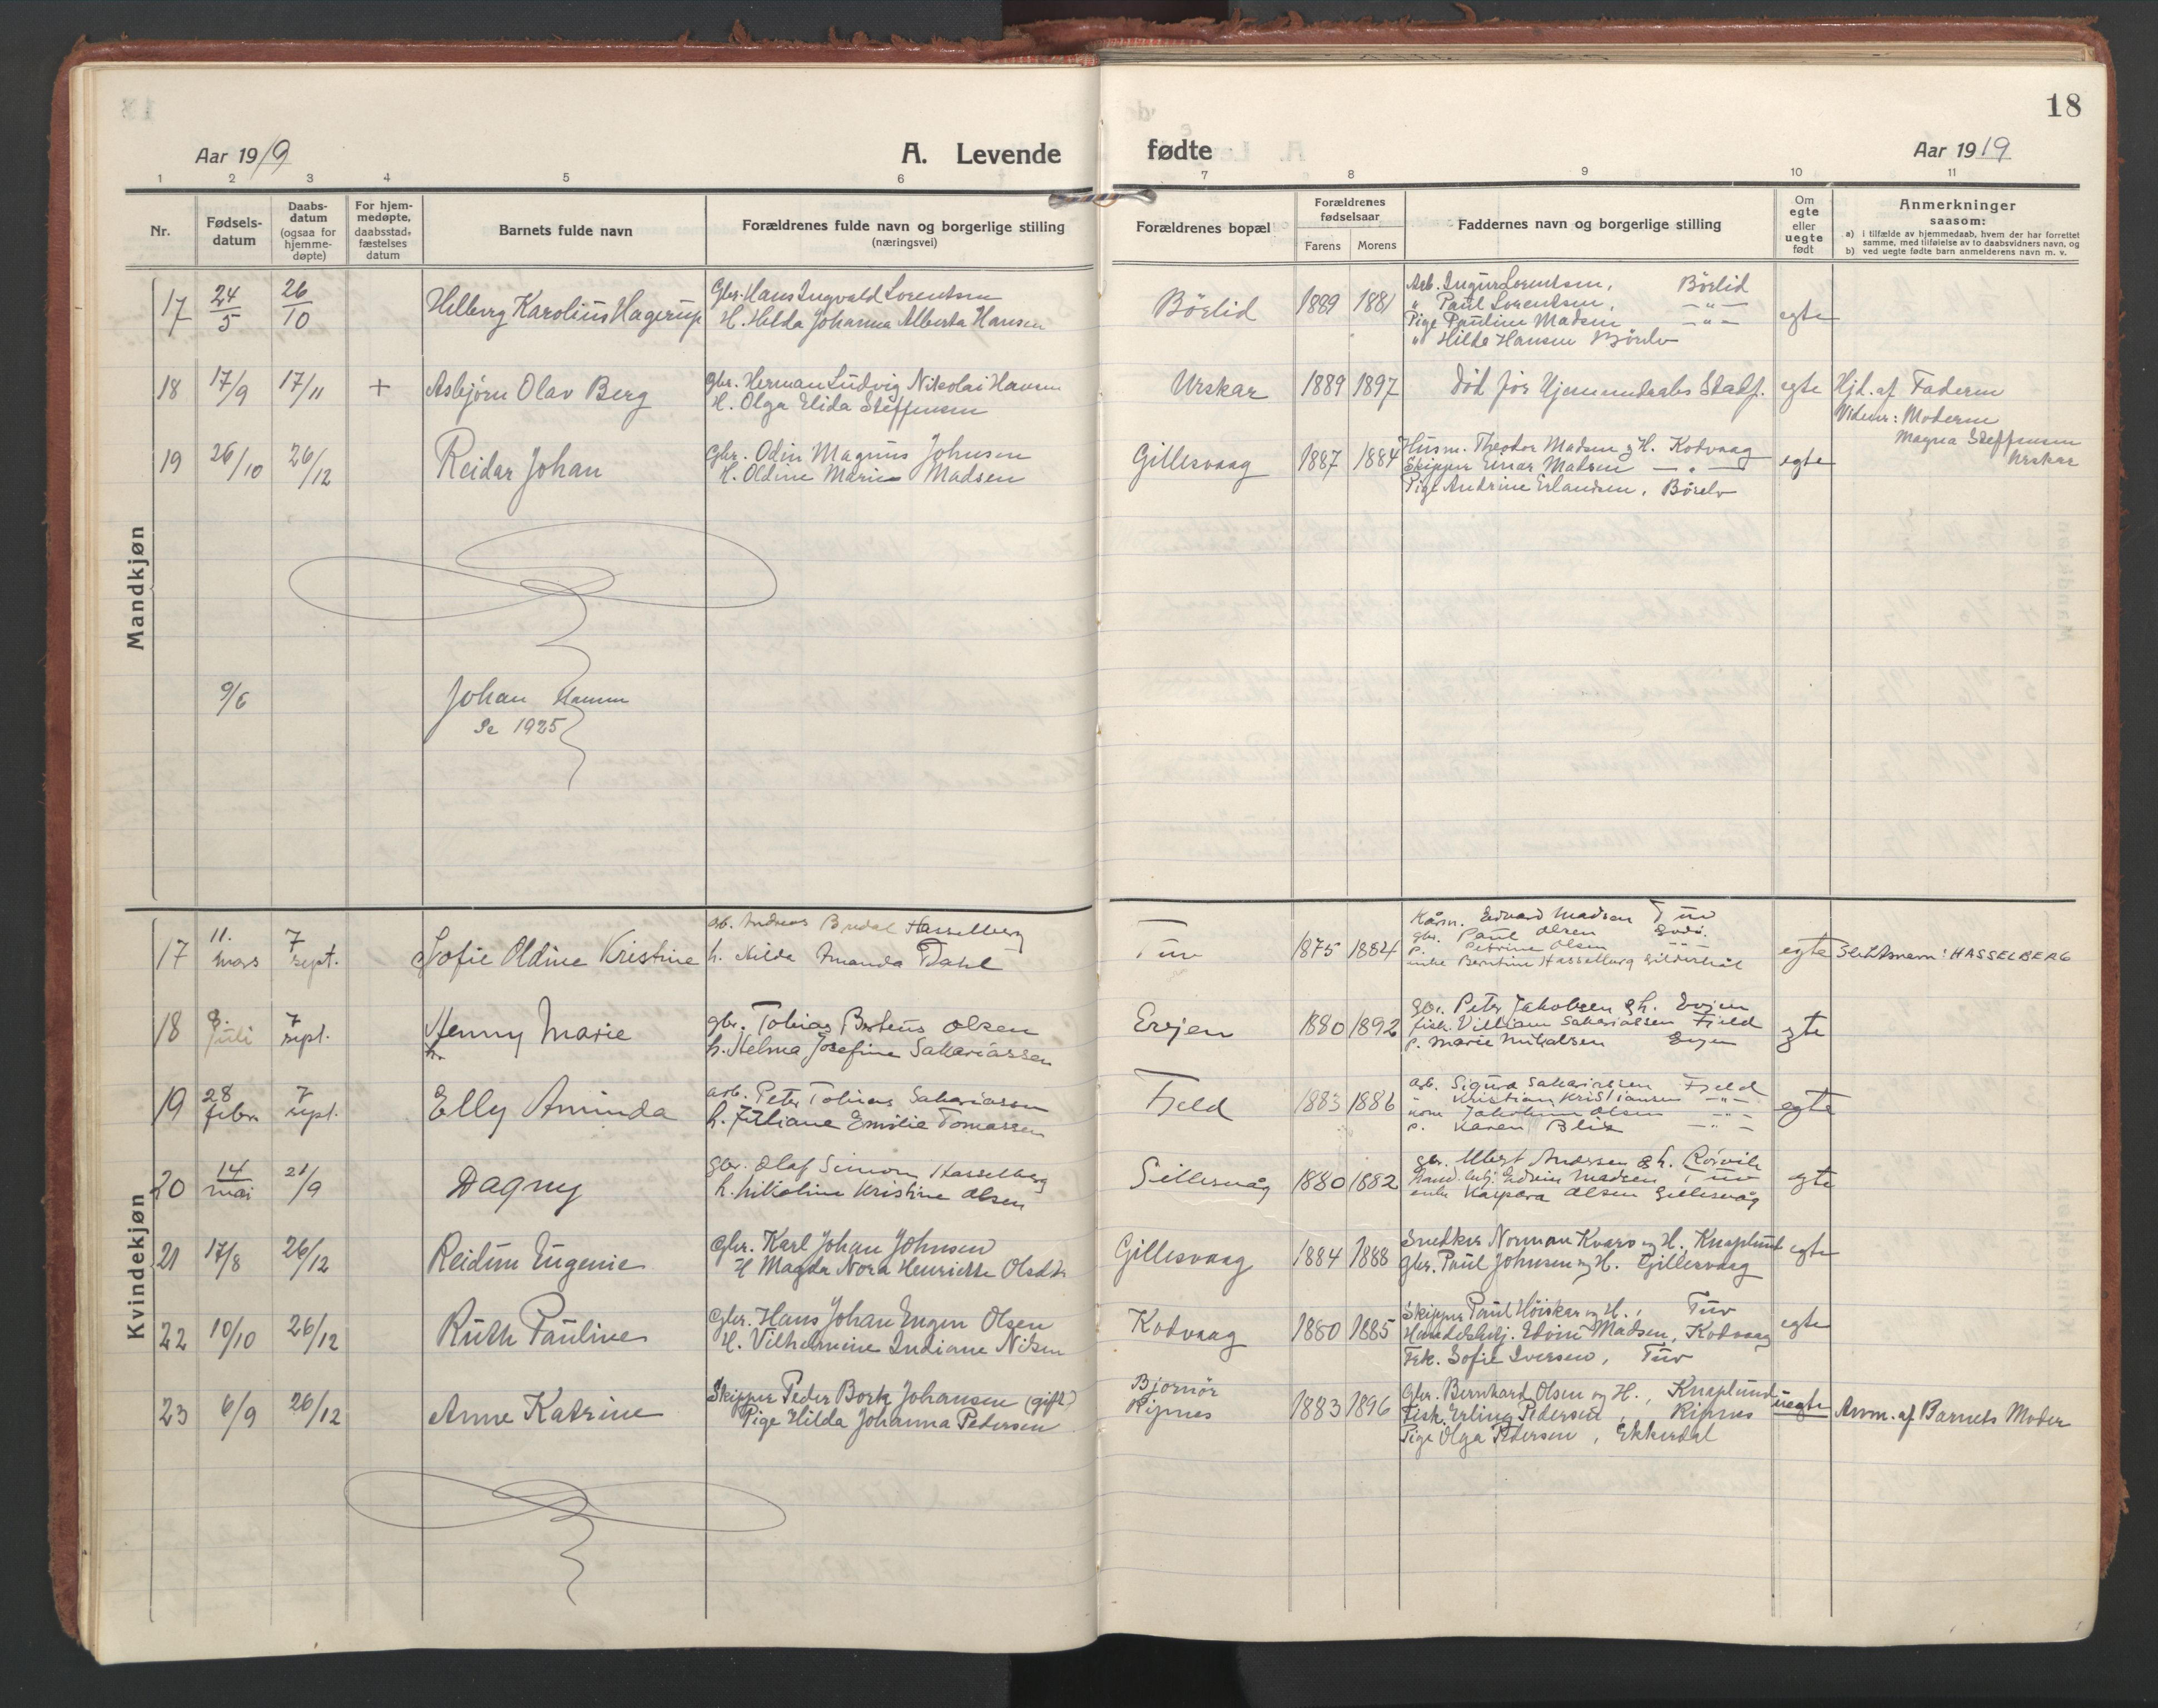 18
Aar 1919
A. Levende fødte
Aar 1919
1 2 3 4 5 6 7 8 9 10 11
Nr.
Fødsels-
datum
Daabs-
datum
(ogsaa for
hjemme-
døpte)
For hjem-
medøpte,
daabsstad,
fæstelses
datum
Barnets fulde navn
Forældrenes fulde navn og borgerlige stilling
(næringsvei)
Forældrenes bopæl
Forældrenes
fødselsaar
Farens Morens
Faddernes navn og borgerlige stilling
Om
egte
eller
uegte
født
Anmerkninger
saasom:
a) i tilfælde av hjemmedaab, hvem der har forrettet
samme, med tilføielse av to daabsvidners navn, og
b) ved uegte fødte barn anmelderens navn m. v.
Mandkjøn
17 24/5 26/10 Hilberg Karolius Hagerup
Gbr. Hans Ingvald Lorentsen
H. Hilda Johanna Alberta Hansen
Börlid 1889 1881
Arb. Lorentsen, Börlid
" Paul Lorentsen, —"—
Pige Pauline Madsen —"—
" Hilda Hansen
egte
18 17/9 17/11 + Asbjørn Olav Berg
Gbr. Herman Ludvig Nikolai Hansen
H. Olga Elida Steffensen
Urskar 1889 1897
Död før Hjemmedaabs Stadf.
egte
Hjd. af Faderen
Vidner: Moderen
Magna Steffensen
Urskar
19 26/10 26/12 Reidar Johan
Gbr. Odin Magnus Johnsen
H. Oldine Marie Madsen
Gillesvaag 1887 1884
Husm. Theodor Madsen og H. Kodvaag
Skipper Einar Madsen —"—
Pige Andrine Erlandsen, Börelv
egte
9/6 Johan
Se 1925
Kvindekjøn
17 11. mars 7 sept. Sofie Oldine Kristine
arb. Andreas Hasselberg
h. Hilda Amanda Dahl
Tuv 1875 1884
Edvard Madsen Tuv
gbr. Paul Olsen
p. Petrine Olsen
enke Berntine Hasselberg Gildeskål
egte
Slektsnavn: HASSELBERG
18 8. juli 7 sept. Henny Marie
gbr. Tobias Olsen
h. Helma Josefine Sakariassen
Evjen 1880 1892
gbr. Peter Jakobsen & h. Evjen
fisk. Villiam Sakariassen Fjeld
p. Marie Mikalsen Evjen
egte
19 28 febr 7 sept. Elly Aminda
arb. Peter Tobias Sakariassen
h. Juliane Emilie Tomassen
Fjeld 1883 1886
arb. Sigurd Sakariassen Fjeld
" Kristian Kristiansen —"—
Olsen —"—
p. Karen Blix —"—
egte
20 14 mai 21/9 Dagny
gbr. Olaf Simon Hasselberg
h. Nikoline Kristine Olsen
Gillesvåg 1880 1882
gbr. Albert Andersen & h. Rörvik
Hand.betj. Edvin Madsen, Tuv
enke Kaspara Olsen Gillesvåg
egte
21 17/8 26/12 Reidun Eugenie
Gbr. Karl Johan Johnsen
H Magda Nora Henriette Olsdtr
Gillesvaag 1884 1888
Snedker Norman Kvarv og H., Knaplund
Gbr. Paul Johnsen og H. Gillesvaag
egte
22 10/10 26/12 Ruth Pauline
Gbr. Hans Johan Olsen
H. Vilhelmine Indiane Nilsen
Kodvaag 1880 1885
Skipper Paul Höiskar og H., Tuv
Handelsbetj. Edvin Madsen, Kodvaag
Frk. Sofie Iversen, Tuv
egte
23 6/9 26/12 Anne Katrine
Skipper Peder Bork Johansen (gift)
Pige Hilda Johanna Pedersen
Bjørnör
Ripnes 1883 1896
Gbr. Bernhard Olsen og H., Knaplund
Fisk. Erling Pedersen, Ripnes
Pige Olga Pedersen, Ekkerdal
uegte
Anm. af Barnets Moder